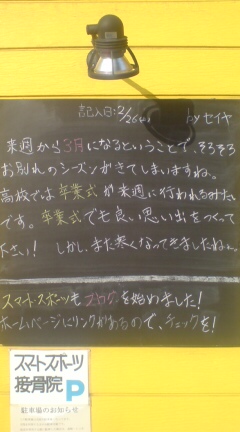 記入日:2/26 by セイヤ
来週から3月になるということで、そろそろ
お別れのシーズンがきてしまいますね。
高校では卒業式が来週に行われるみたい
です。卒業式でも良い思い出をつくって
下さい! しかし、また寒くなってきましたねぇ。
スマートスポーツもブログを始めました!
ホームページにリンクがあるので、チェックを!
スマートスポーツ
接骨院 P
駐車場のお知らせ